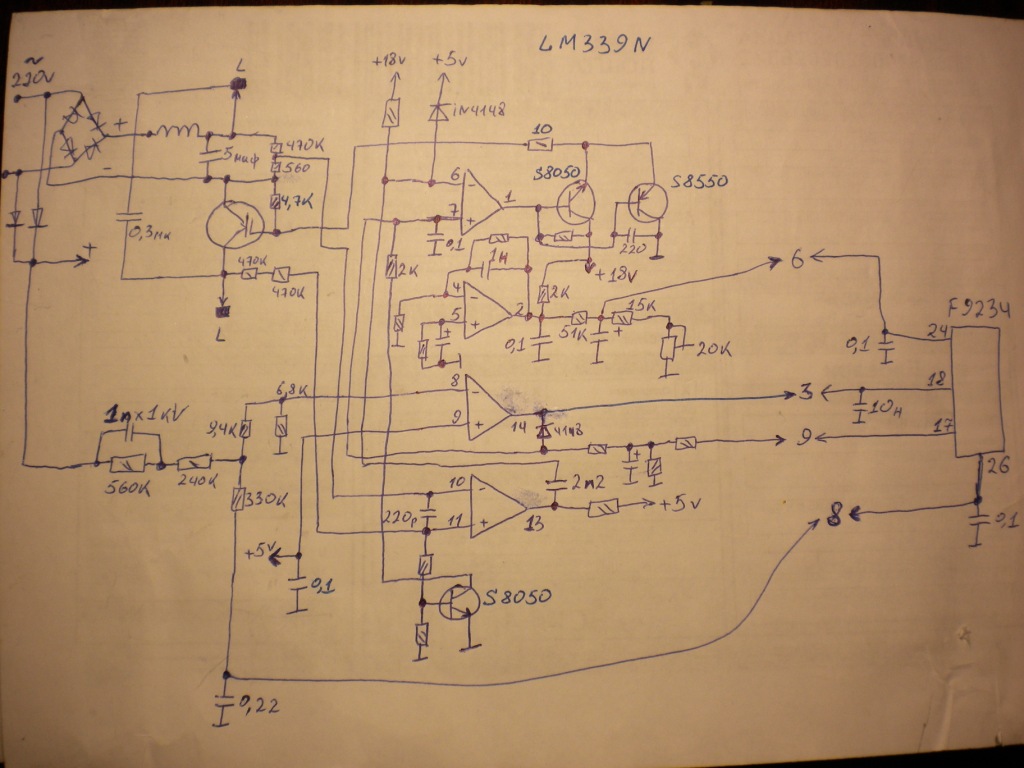 LM339N
~
220V
L
+18V
+5V
iN4148
+
-
5мкф
470K
560
4,7K
10
S8050
S8550
6
-
7
+
1
0,1
220
0,3мк
+
2K
1н
+18V
470K
470K
L
4
-
5
+
2
2K
0,1
51K
15K
+
20K
6
0,1
24
F9234
18
17
26
6,8K
8
-
9
+
14
4148
3
10н
9
1n×1kV
560K
240K
330K
10
-
11
+
13
220p
2m2
+5V
+
8
0,1
+5V
0,1
S8050
0,22